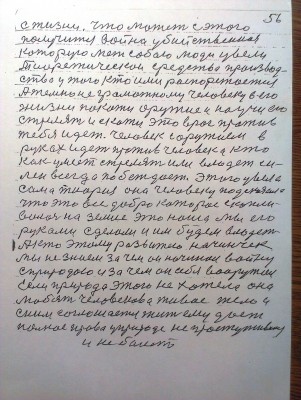 56
с жизни. Что может с этого
получится война убийственная
которую меж собою люди увели
Теоретическое средство производ-
ство у того кто или распоряжается
А темно не грамотному человеку в его
жизни покажи оружие и научи его
стрелять и скажи это враг против
тебя идет. Человек с оружием в
руках идет против человека кто
как умеет стрелять или владеть си-
лен всегда побеждает. Этого увела
сама теория она человеку подсказала
что это все добро которое скопи-
лось на земле это наша мы его
руками сделали и им будем владеть
А кто этому развитию начинщик
мы не знаем зачем он начинал войну
с природою и зачем он себя вооружил
Если природа этого не хотела она
любит человека живое тело и
с ним соглашается жить ему дает
полное право в природе не простуживаться
и не болеть